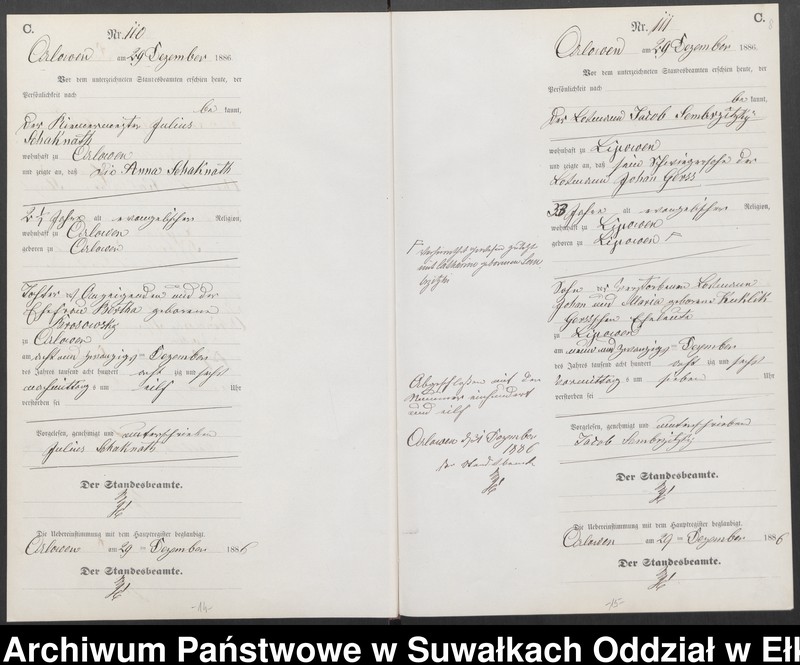 C.
Nr. 110
Orlowen am 29 Dezember 1886
Vor dem unterzeichneten Standesbeamten erschien heute, der
Persönlichkeit nach
be kannt,
der Riemermeister Julius
Schaknath
wohnhaft zu Orlowen
und zeigte an, daß die Anna Schaknath
2 1/4 Jahr alt evangelischer Religion,
wohnhaft zu Orlowen
geboren zu Orlowen
Tochter des Anzeigenden und der
Ehefrau Bertha geborene
Krosowsky
zu Orlowen
am acht und zwanzigsten Dezember
des Jahres tausend acht hundert achtzig und sechs
nachmittags um eilf Uhr
verstorben sei
Vorgelesen, genehmigt und unterschrieben
Julius Schaknath
Der Standesbeamte.
Die Uebereinstimmung mit dem Hauptregister beglaubigt.
Orlowen am 29 ten Dezember 1886
Der Standesbeamte.
-14-
C.
Nr. 111
Orlowen am 29 Dezember 1886.
Vor dem unterzeichneten Standesbeamten erschien heute, der
Persönlichkeit nach
be kannt,
der Losmann Jacob Sembrzitzki
wohnhaft zu Lipowen
und zeigte an, daß sein Schwiegersohn der
Losmann Johan Gerss
33 Jahre alt evangelischer Religion,
wohnhaft zu Lipowen
geboren zu Lipowen
verheirathet gewesen zuletzt
mit geborenen Sem
brzitzki
Sohn der verstorbenen Losmann
Johan und Maria geborene Kuklik
Gerssschen Eheleute
zu Lipowen
am neun und zwanzigsten Dezember
des Jahres tausend acht hundert achtzig und sechs
Vormittags um sieben Uhr
verstorben sei
Abgeschlossen mit der
Nummer einhundert
und eilf
Orlowen d 31 Dezember
1886
der Standesbeamte
Vorgelesen, genehmigt und unterschrieben
Jacob Sembrzitzki
Der Standesbeamte.
Die Uebereinstimmung mit dem Hauptregister beglaubigt.
Orlowen am 29 ten Dezember 1886
Der Standesbeamte.
-15-
Archiwum Państwowe w Suwałkach Oddział w Ełk